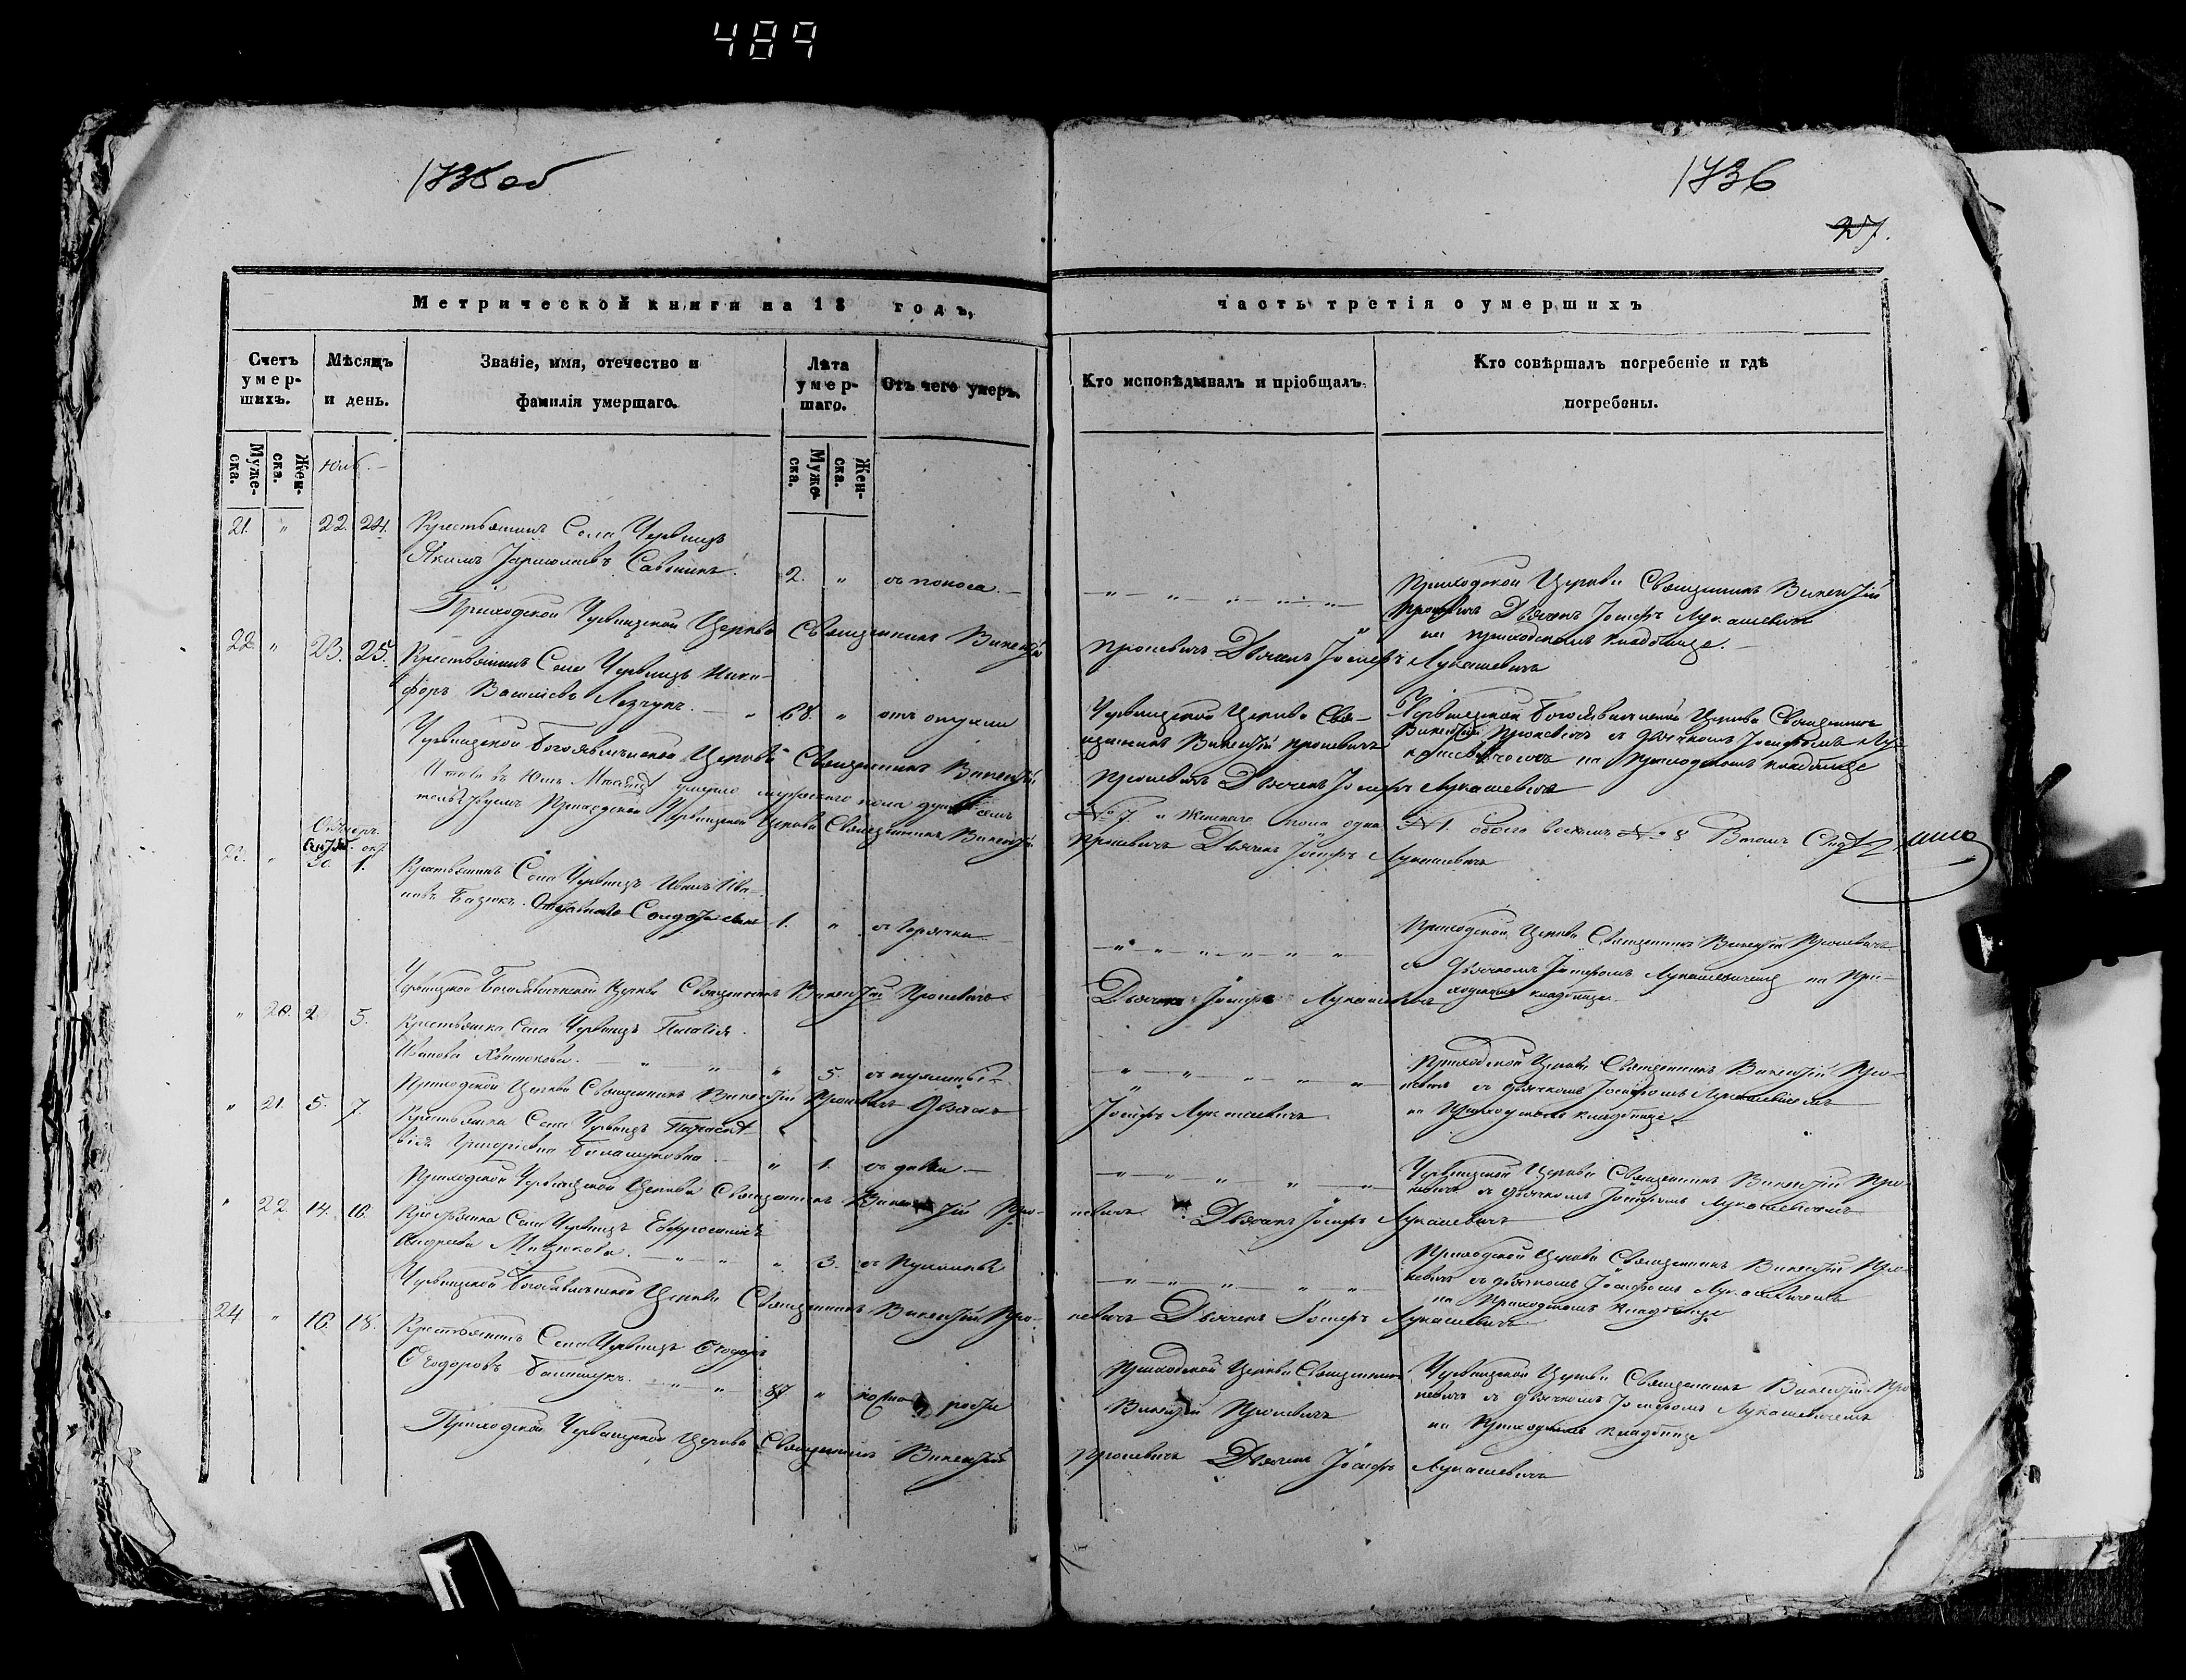 489
1735 об
1736
27.
Метрической книги на 18 годъ,
часть третія о умершихъ
Счетъ умер-
шихъ.
Мѣсяцъ
и день.
Званіе, имя, отечество и
фамилія умершаго.
Лѣта
умер-
шаго.
Отъ чего умеръ.
Кто исповѣдывалъ и пріобщалъ.
Кто совѣршалъ погребеніе и гдѣ
погребены.
Муже-
ска.
Жен-
ска.
Муже-
ска.
Жен-
ска.
21. " 22. 24. Крестьянинъ Села Червищъ
Якимъ Савоникъ. 2. " отъ поноса.
Приходской Церкви Священникъ Викентій
Проневичъ Дьячекъ Іосифъ Лукашевичъ
на приходскомъ кладбище.
Приходской Червищской Церкви Священникъ Викентій Проневичъ Дьячекъ Іосифъ Лукашевичъ
22. " 23. 25. Крестьянинъ Села Червищъ Ники-
форъ Васильевъ 68. " отъ опухли
Червищской Церкви Свя-
щенникъ Викентій Проневичъ
Червищской Богоявленской Церкви Священникъ
Викентій Проневичъ съ дьячкомъ Іосифомъ Лу-
кашевичемъ на Приходскомъ кладбище
Червищской Богоявленской Церкви Священникъ Викентій Проневичъ Дьячекъ Іосифъ Лукашевичъ
Итого въ Юлѣ Месяцѣ умерло мужеского пола № 7. и Женского пола одна № 1. обоего восемь № 8
Приходской Червищской Церкви Священникъ Викентій Проневичъ Дьячекъ Іосифъ Лукашевичъ
Октябрь
23. " 30. 1. Крестьянинъ Села Червищъ Иванъ Ива-
новъ Базюкъ. 1. " отъ горячки
Приходской Церкви Священникъ Викентій Проневичъ
съ дьячкомъ Іосифомъ Лукашевичемъ на При-
ходскомъ кладбище.
Червищской Богоявленской Церкви Священникъ Викентій Проневичъ Дьячекъ Іосифъ Лукашевичъ
" 20. 2 5. Крестьянка Села Червищъ Пелагія
Иванова " " " 5.
Приходской Церкви Священникъ Викентій Про-
невичъ съ дьячкомъ Іосифомъ Лукашевичемъ
на Приходскомъ кладбище
Приходской Церкви Священникъ Викентій Проневичъ Дьячекъ Іосифъ Лукашевичъ
" 21. 5. 7. Крестьянка Села Червищъ Параске-
вія Григоріевна " 1.
Червищской Церкви Священникъ Викентій Про-
невичъ съ дьячкомъ Іосифомъ Лукашевичемъ
Приходской Червищской Церкви Священникъ Викентій Про-
невичъ Дьячекъ Іосифъ Лукашевичъ
" 22. 14. 16. Крестьянка Села Червищъ Евфросинія
Андреева " 3.
Приходской Церкви Священникъ Викентій Про-
невичъ съ дьячкомъ Іосифомъ Лукашевичемъ
на Приходскомъ кладбище
Червищской Богоявленской Церкви Священникъ Викентій Про-
невичъ Дьячекъ Іосифъ Лукашевичъ
24 " 16. 18. Крестьянинъ Села Червищъ Ѳеодоръ
Ѳеодоровъ " " 87 "
Приходской Церкви Священникъ
Викентій Проневичъ
Червищской Церкви Священникъ Викентій Про
невичъ съ дьячкомъ Іосифомъ Лукашевичемъ
на Приходскомъ кладбище
Приходской Червищской Церкви Священникъ Викентій
Проневичъ Дьячекъ Іосифъ Лукашевичъ